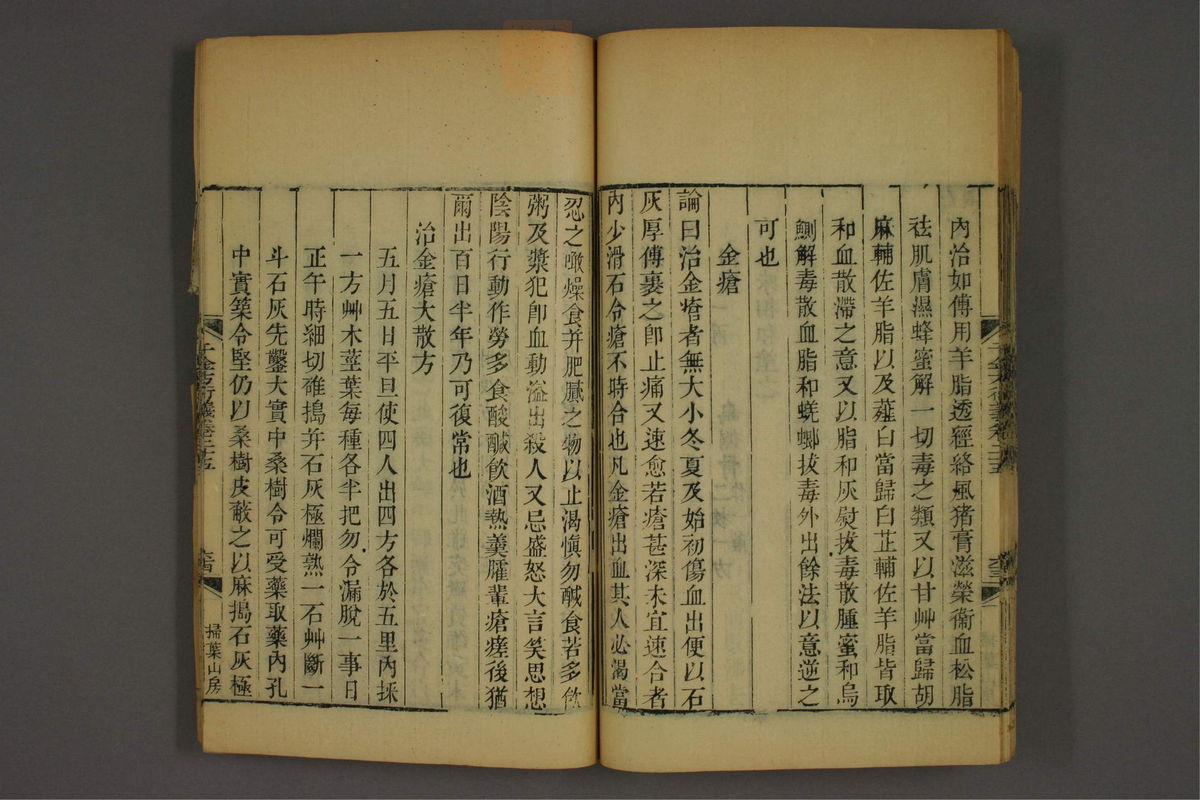 內治如傅用羊脂透經絡風猪膏滋榮衞血松脂
祛肌膚濕蜂蜜解一切毒之類又以甘艸當歸胡
麻輔佐羊脂以及薤白當歸白芷輔佐羊脂皆取
和血散滯之意又以脂和灰熨拔毒散腫蜜和烏
鰂解毒散血脂和蜣螂拔毒外出餘法以意逆之
可也
金瘡
論曰治金瘡者無大小冬夏及始初傷血出便以石
灰厚傅裹之卽止痛又速愈若瘡甚深未宜速合者
內少滑石令瘡不時合也凡金瘡出血其人必渴當
忍之噉燥食幷肥膩之物以止渴愼勿鹹食若多飲
粥及漿犯卽血動溢出殺人又忌盛怒大言笑思想
陰陽行動作勞多食酸鹹飲酒熱羹臛輩瘡瘥後猶
爾出百日半年乃可復常也
治金瘡大散方
五月五日平旦使四人出四方各於五里內採
一方艸木莖葉每種各半把勿令漏脫一事日
正午時細切碓搗幷石灰極爛熟一石艸斷一
斗石灰先鑿大實中桑樹令可受藥取藥內孔
中實築令堅仍以桑樹皮蔽之以麻搗石灰極
千金方衍義卷二十五
掃葉山房